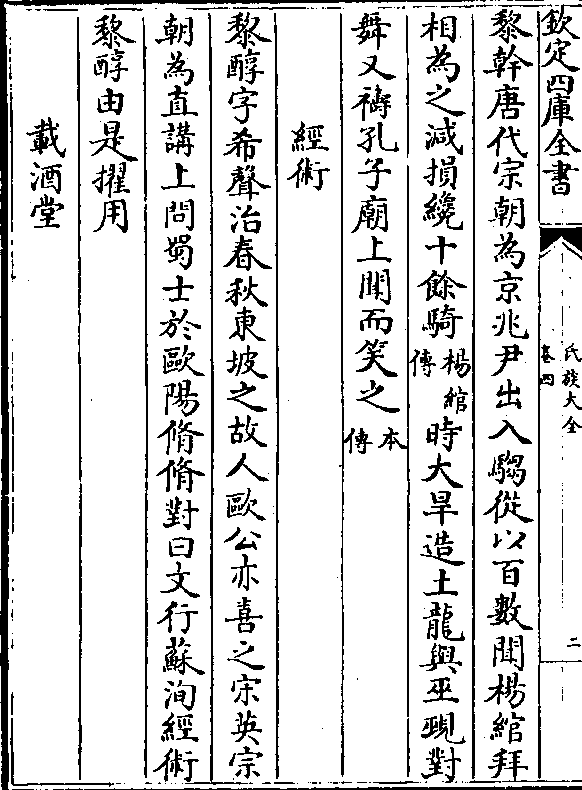 欽定四庫全書
氏族大全
卷四
二
黎幹唐代宗朝為京兆尹出入騶從以百數聞楊綰拜
相為之減損纔十餘騎楊綰傳時大旱造土龍與巫覡對
舞又禱孔子廟上聞而笑之本傳
經術
黎醇字希聲治春秋東坡之故人歐公亦喜之宋英宗
朝為直講上問蜀士於歐陽脩脩對曰文行蘇洵經術
黎醇由是擢用
載酒堂